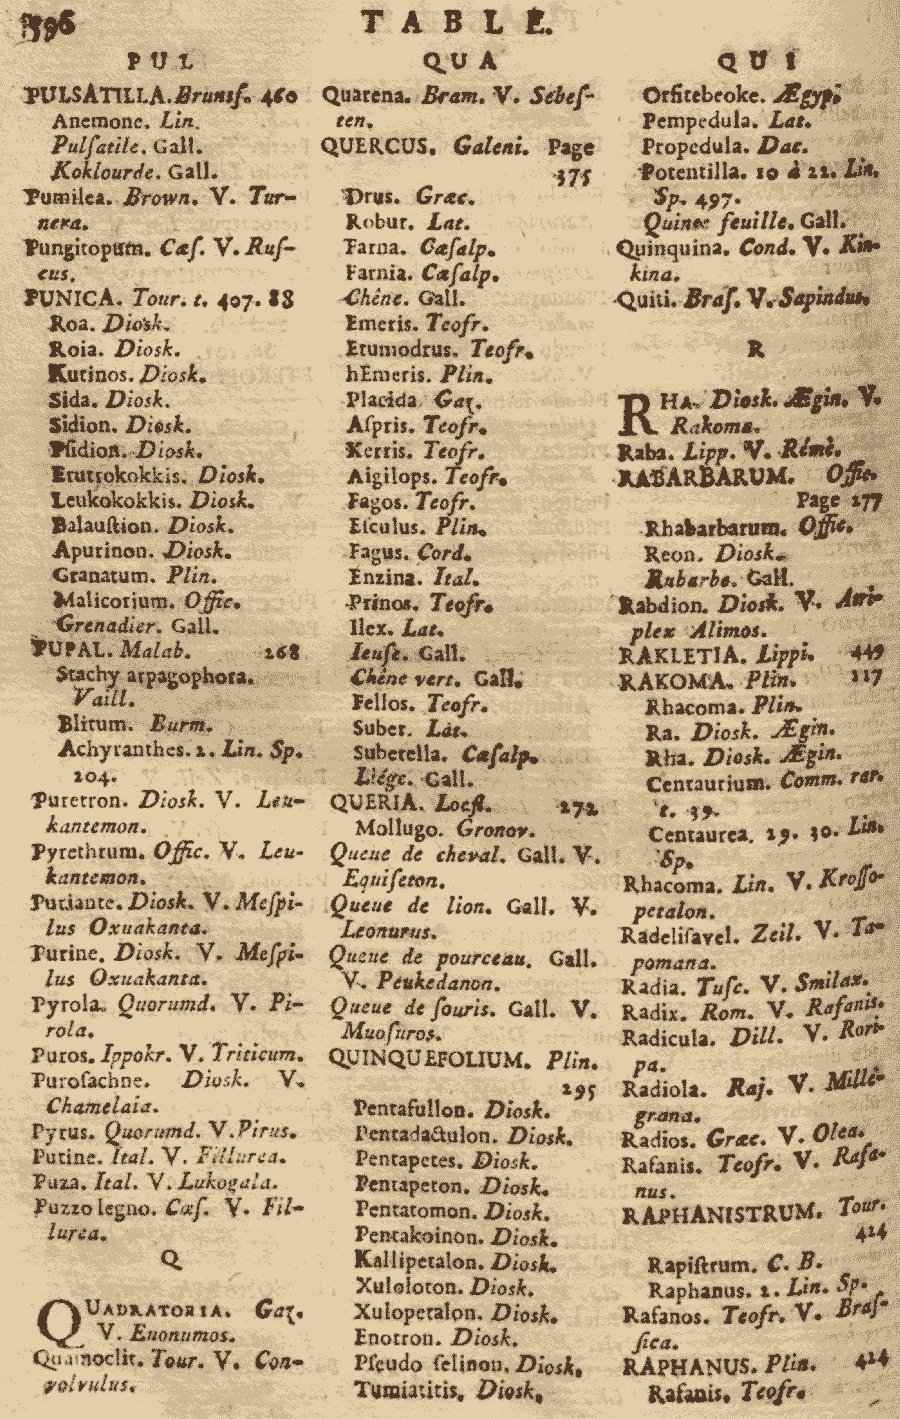 596
TABLE.
PUL
PULSATILLA. Brunsf. 460
Anemone. Lin.
Pulſatile. Gall.
Koklourde. Gall.
Pumilea. Brown. V. Tur-
nera.
Pungitopum. Cæſ. V. Ruſ-
cus.
PUNICA. Tour. t. 407. 88
Roa. Diosk.
Roia. Diosk.
Kutinos. Diosk.
Sida. Diosk.
Sidion. Diosk.
Pſidion. Diosk.
Erutrokokkis. Diosk.
Leukokokkis. Diosk.
Balauſtion. Diosk.
Apurinon. Diosk.
Granatum. Plin.
Malicorium. Offic.
Grenadier. Gall.
PUPAL. Malab. 268
Stachy arpagophora.
Vaill.
Blitum. Burm.
Achyranthes. 2. Lin. Sp.
204.
Puretron. Diosk. V. Leu-
kantemon.
Pyrethrum. Offic. V. Leu-
kantemon.
Puriante. Diosk. V. Meſpi-
lus Oxuakanta.
Purine. Diosk. V. Meſpi-
lus Oxuakanta.
Pyrola. Quorumd. V. Pi-
rola.
Puros. Ippokr. V. Triticum.
Puroſachne. Diosk. V.
Chamelaia.
Pyrus. Quorumd. V. Pirus.
Putine. Ital. V. Fillurea.
Puza. Ital. V. Lukogala.
Puzzo legno. Cæſ. V. Fil-
lurea.
Q
QUADRATORIA. Gaz.
V. Euonumos.
Quamoclit. Tour. V. Con-
volvulus.
QUA
Quarena. Bram. V. Sebeſ-
ten.
QUERCUS. Galeni. Page
375
Drus. Græc.
Robur. Lat.
Farna. Cæſalp.
Farnia. Cæſalp.
Chêne. Gall.
Emeris. Teofr.
Etumodrus. Teofr.
hEmeris. Plin.
Placida. Gaz.
Aſpris. Teofr.
Kerris. Teofr.
Aigilops. Teofr.
Fagos. Teofr.
Eſculus. Plin.
Fagus. Cord.
Enzina. Ital.
Prinos. Teofr.
Ilex. Lat.
Ieuſe. Gall.
Chêne vert. Gall.
Fellos. Teofr.
Suber. Lat.
Suberella. Cæſalp.
Liége. Gall.
QUERIA. Loefl. 272
Mollugo. Gronov.
Queue de cheval. Gall. V.
Equiſeton.
Queue de lion. Gall. V.
Leonurus.
Queue de pourceau. Gall.
V. Peukedanon.
Queue de ſouris. Gall. V.
Muoſuros.
QUINQUEFOLIUM. Plin.
295
Pentafullon. Diosk.
Pentadactulon. Diosk.
Pentapetes. Diosk.
Pentapeton. Diosk.
Pentatomon. Diosk.
Pentakoinon. Diosk.
Kallipetalon. Diosk.
Xuloloton. Diosk.
Xulopetalon. Diosk.
Enotron. Diosk.
Pſeudo ſelinon. Diosk.
Tumiatitis. Diosk.
QUI
Orfitebeoke. Ægyp.
Pempedula. Lat.
Propedula. Dac.
Potentilla. 10 à 22. Lin.
Sp. 497.
Quinte feuille. Gall.
Quinquina. Cond. V. Kin-
kina.
Quiti. Braſ. V. Sapindus.
R
RHA. Diosk. Ægin. V.
Rakoma.
Raba. Lipp. V. Rémè.
RABARBARUM. Offic.
Page 277
Rhabarbarum. Offic.
Reon. Diosk.
Rubarbe. Gall.
Rabdion. Diosk. V. Atri-
plex Alimos.
RAKLETIA. Lippi. 449
RAKOMA. Plin. 117
Rhacoma. Plin.
Ra. Diosk. Ægin.
Rha. Diosk. Ægin.
Centaurium. Comm. rar.
t. 39.
Centaurea. 29. 30. Lin.
Sp.
Rhacoma. Lin. V. Kroſſo-
petalon.
Radeliſavel. Zeil. V. Ta-
pomana.
Radia. Tuſc. V. Smilax.
Radix. Rom. V. Rafanis.
Radicula. Dill. V. Rori-
pa.
Radiola. Raj. V. Millè-
grana.
Radios. Græc. V. Olea.
Rafanis. Teofr. V. Rafa-
nus.
RAPHANISTRUM. Tour.
414
Rapiſtrum. C. B.
Raphanus. 2. Lin. Sp.
Rafanos. Teofr. V. Braſ-
ſica.
RAPHANUS. Plin. 414
Rafanis. Teofr.